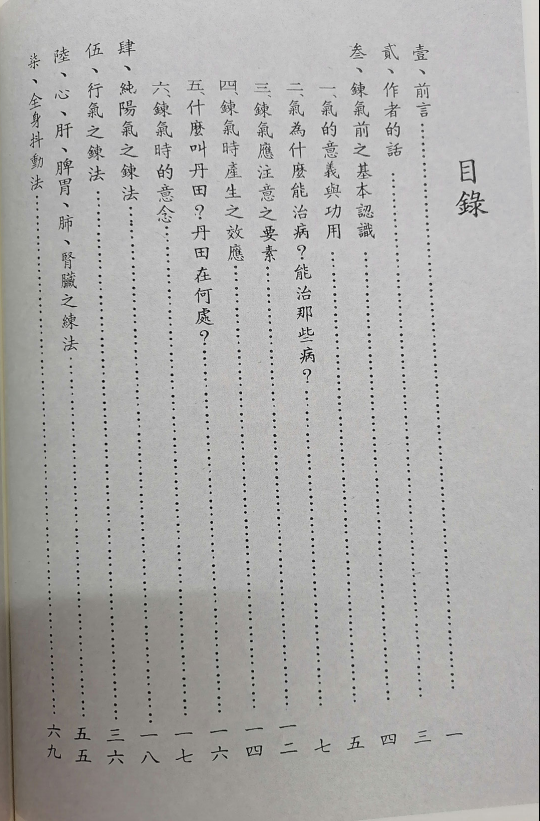 目錄
壹、前言……一
貳、作者的話……三
叁、鍊氣前之基本認識……四
一、氣的意義與功用……五
二、氣為什麼能治病？能治那些病？……七
三、鍊氣應注意之要素……一二
四、鍊氣時產生之效應……一四
五、什麼叫丹田？丹田在何處？……一六
六、鍊氣時的意念……一七
肆、純陽氣之鍊法……一八
伍、行氣之鍊法……三六
陸、心、肝、脾胃、肺、腎臟之練法……五五
柒、全身抖動法……六九